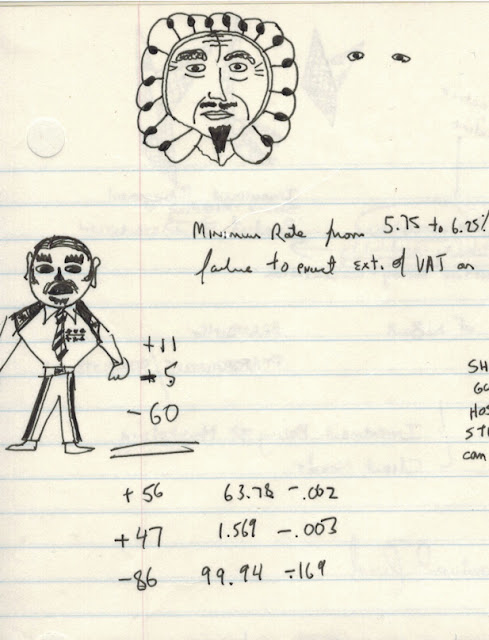 Minimum Rate from 5.75 to 6.25%
failure to enact ext. of VAT on
+11
+5
-60
SH
Go
HOS
STI
can
+56 63.78 -.002
+47 1.569 -.003
-86 99.94 -.169